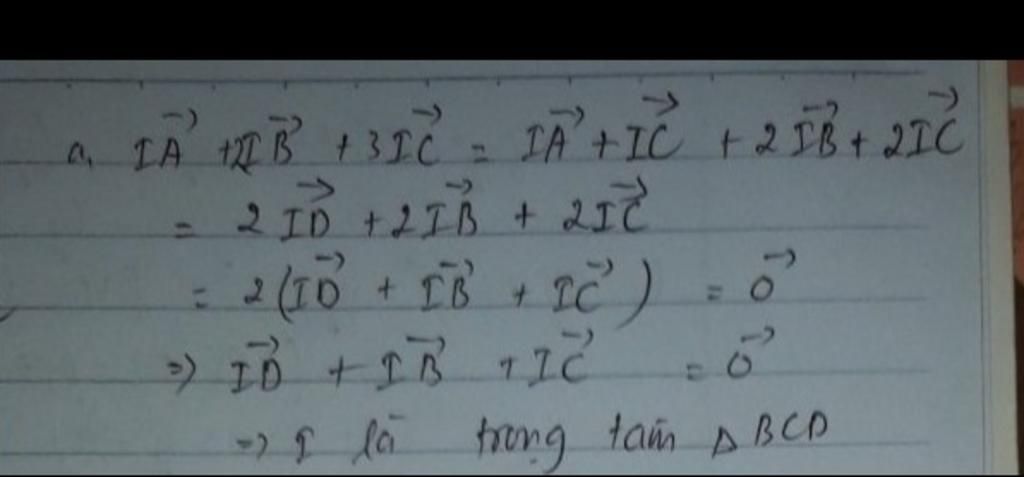 a, IA⃗ + 2IB⃗ + 3IC⃗ = IA⃗ + IC⃗ + 2IB⃗ + 2IC⃗
= 2ID⃗ + 2IB⃗ + 2IC⃗
= 2(ID⃗ + IB⃗ + IC⃗) = 0⃗
=> ID⃗ + IB⃗ + IC⃗ = 0⃗
=> I là trọng tâm Δ BCD